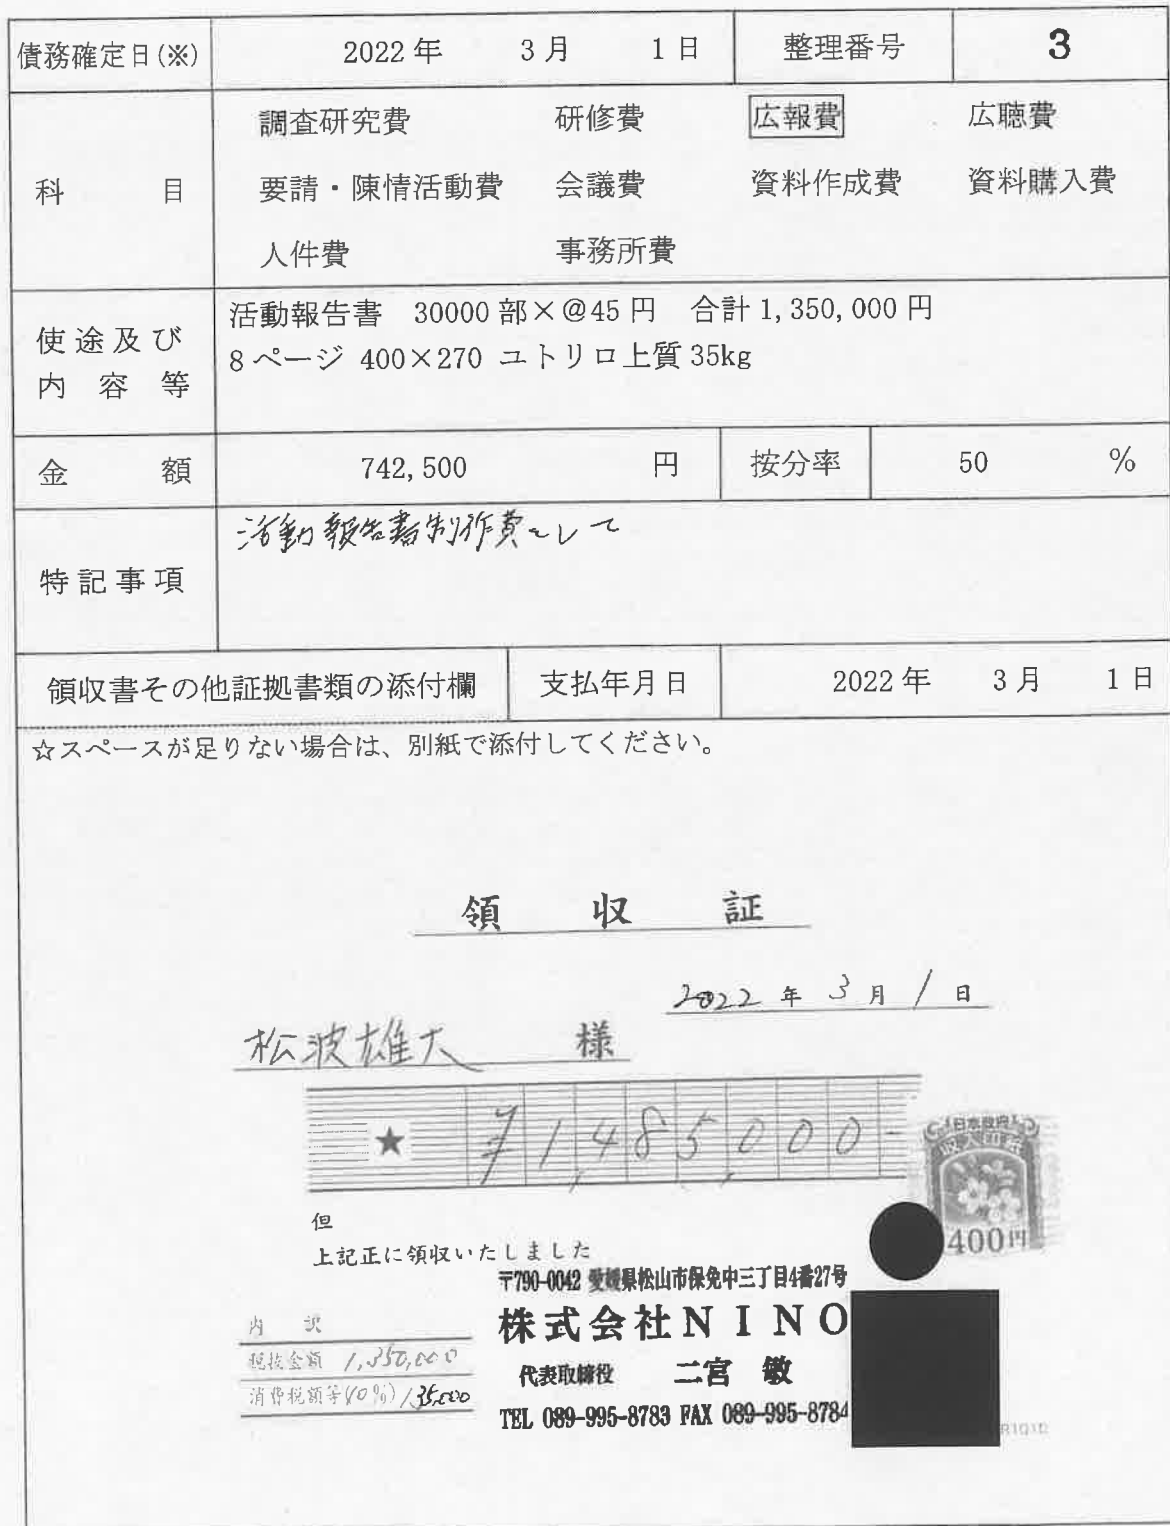 債務確定日(※) 2022年 3月 1日 整理番号 3
科 目
調査研究費 研修費 広報費 広聴費
要請・陳情活動費 会議費 資料作成費 資料購入費
人件費 事務所費
使途及び
内容等
活動報告書 30000部×@45円 合計1,350,000円
8ページ 400×270 ユトリロ上質35kg
金 額 742,500 円 按分率 50 %
特記事項 活動報告書制作費として
領収書その他証拠書類の添付欄 支払年月日 2022年 3月 1日
☆スペースが足りない場合は、別紙で添付してください。
領 収 証
2022年 3月 1日
松波雄大 様
★ ¥1,485,000-
日本政府
収入印紙
400円
但
上記正に領収いたしました
〒790-0042 愛媛県松山市保免中三丁目4番27号
株式会社NINO
代表取締役 二宮 敏
TEL 089-995-8783 FAX 089-995-8784
内 訳
税抜金額 1,350,000
消費税額等(10%) 135,000